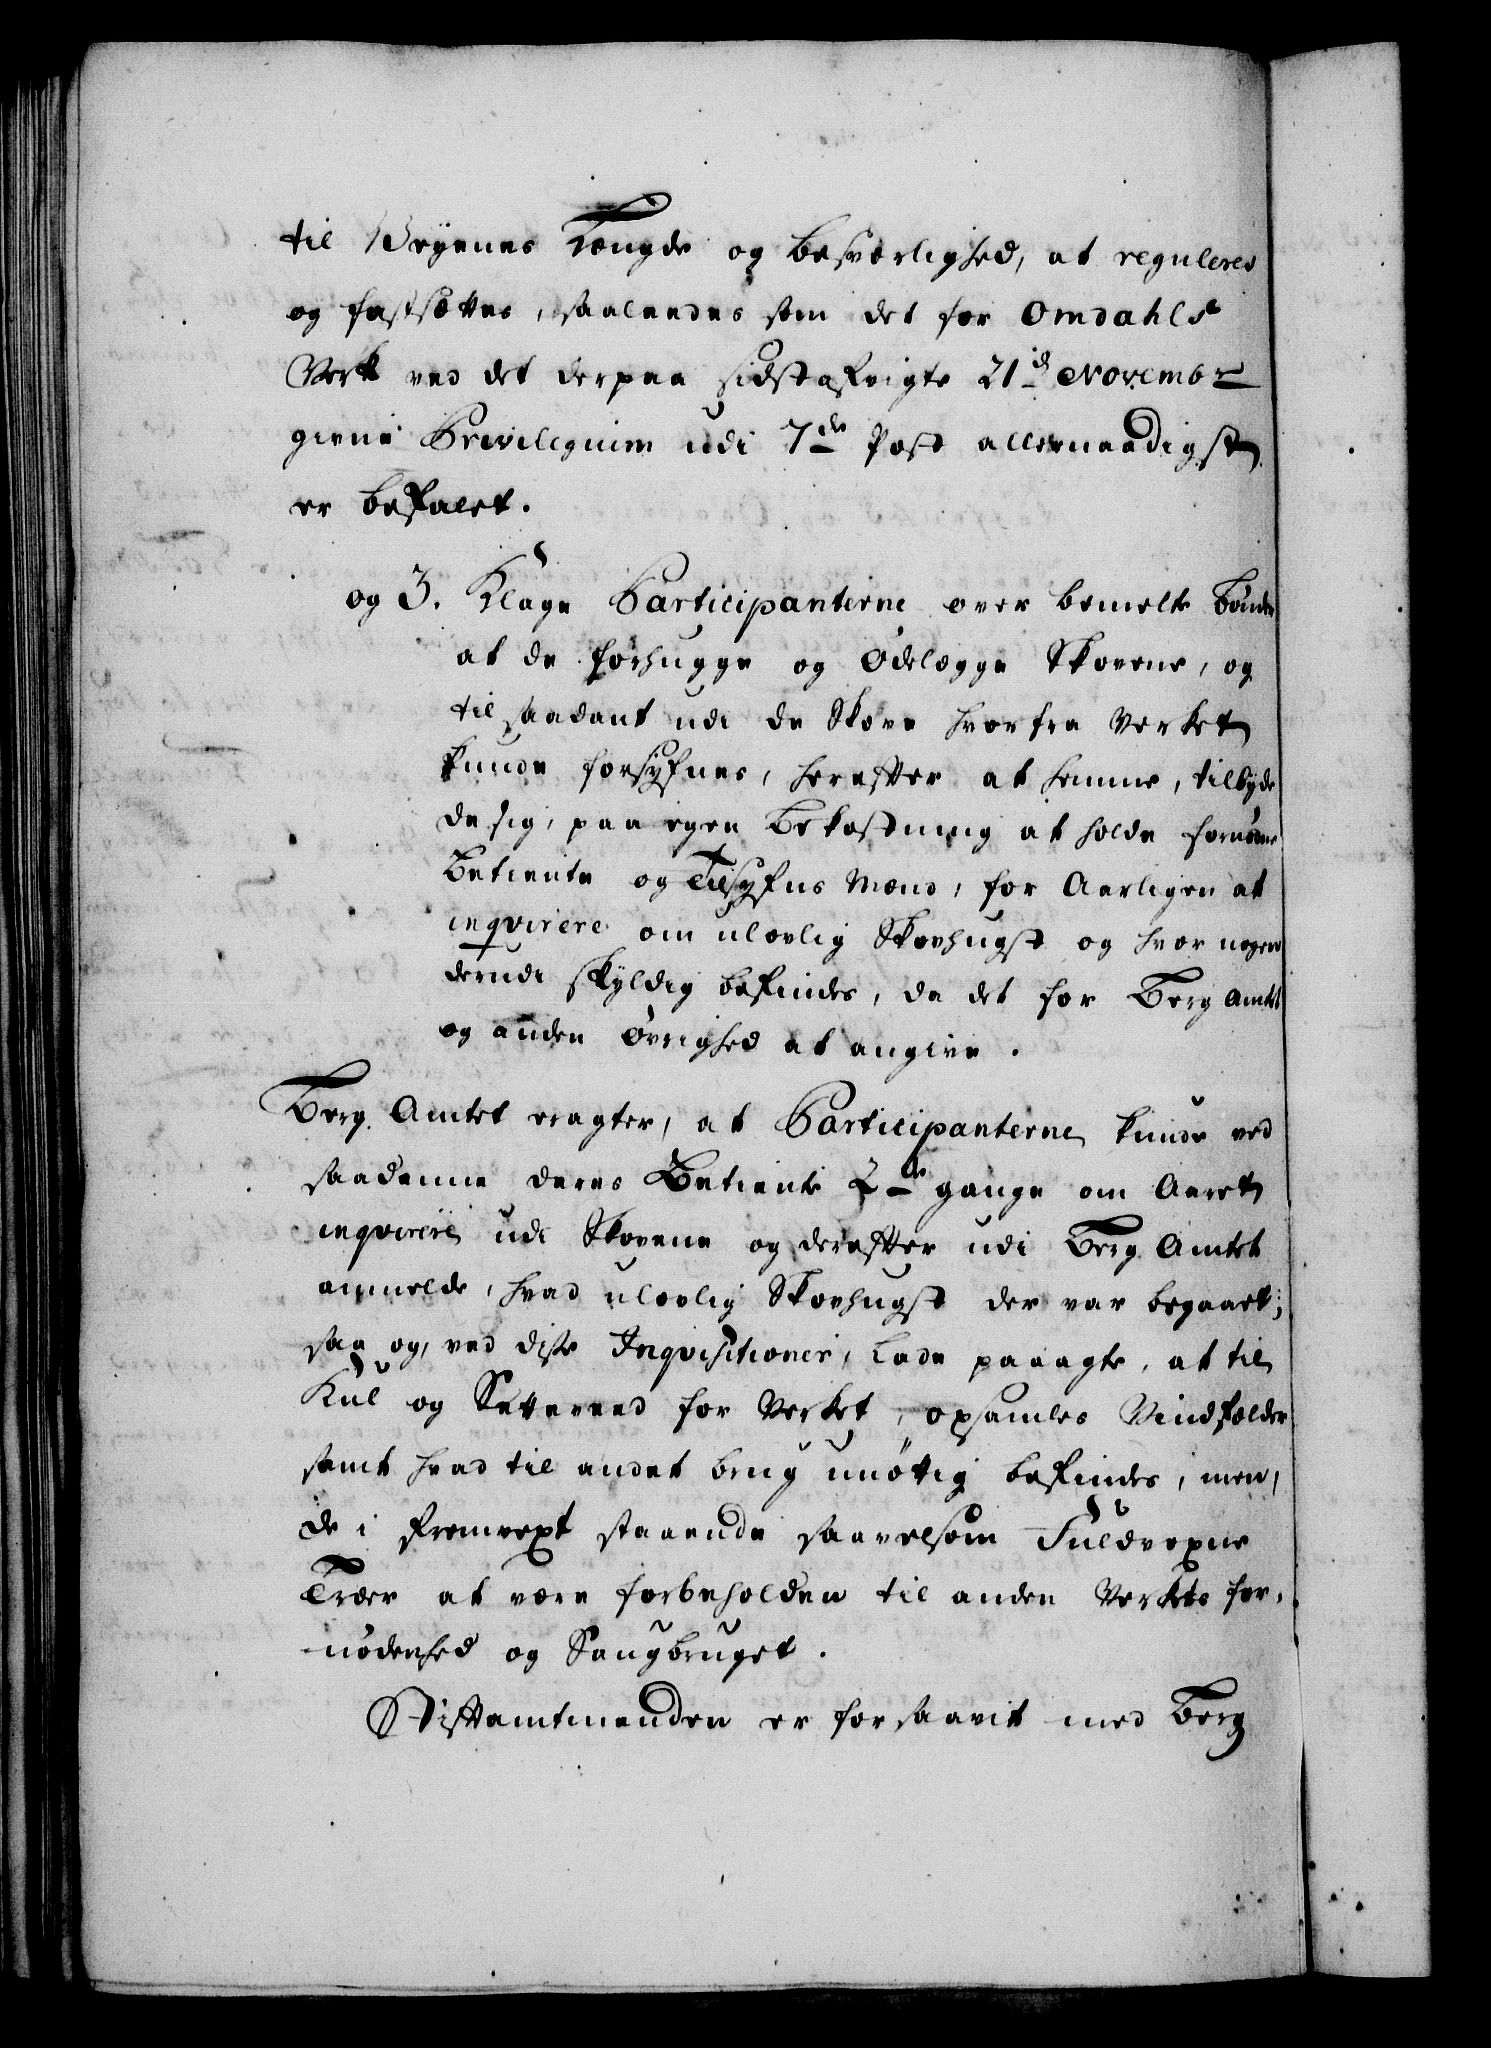 til Veÿenes Længde og besværlighed, at reguleres
og fastsættes, saaledes som det for Omdahls
Verk ved det derpaa sidstafvigte 21d November
givne Privilegium udi 7de Post allernaadigst
er befalet.
og 3. Klage Participanterne over bemelte Bønder
at de forhugge og ødelægge Skovene, og
til saadant udi de Skove hvorfra Verket
kunde forsÿfnes, herefter at hemme, tilbÿde
de sig, paa egen Bekostning at holde fornødne
Betiente og Tilsÿfns Mænd, for Aarligen at
inqvirere om ulovlig Skovhugst og hvor nogen
derudi skÿldig befindes, da det for Berg Amtet
og anden Øvrighed at angive.
Berg Amtet eragter, at Participanterne kunde ved
saadanne deres Betiente 2de gange om Aaret
inqvirere udi Skovene og derefter udi Berg Amtet
anmelde, hvad ulovlig Skovhugst der var begaaet;
saa og, ved disse Inqvisitioner, lade paaagte, at til
Kul og Setteved for Verket, opsamles Vindfælder
samt hvad til andet brug unøttig befindes, men,
de i fremvext staaende saavelsom Fuldvoxne
Træer at være forbeholden til anden Verkets for,
nødenhed og Saugbruget.
Stiftamtmanden er forsaavit med Berg